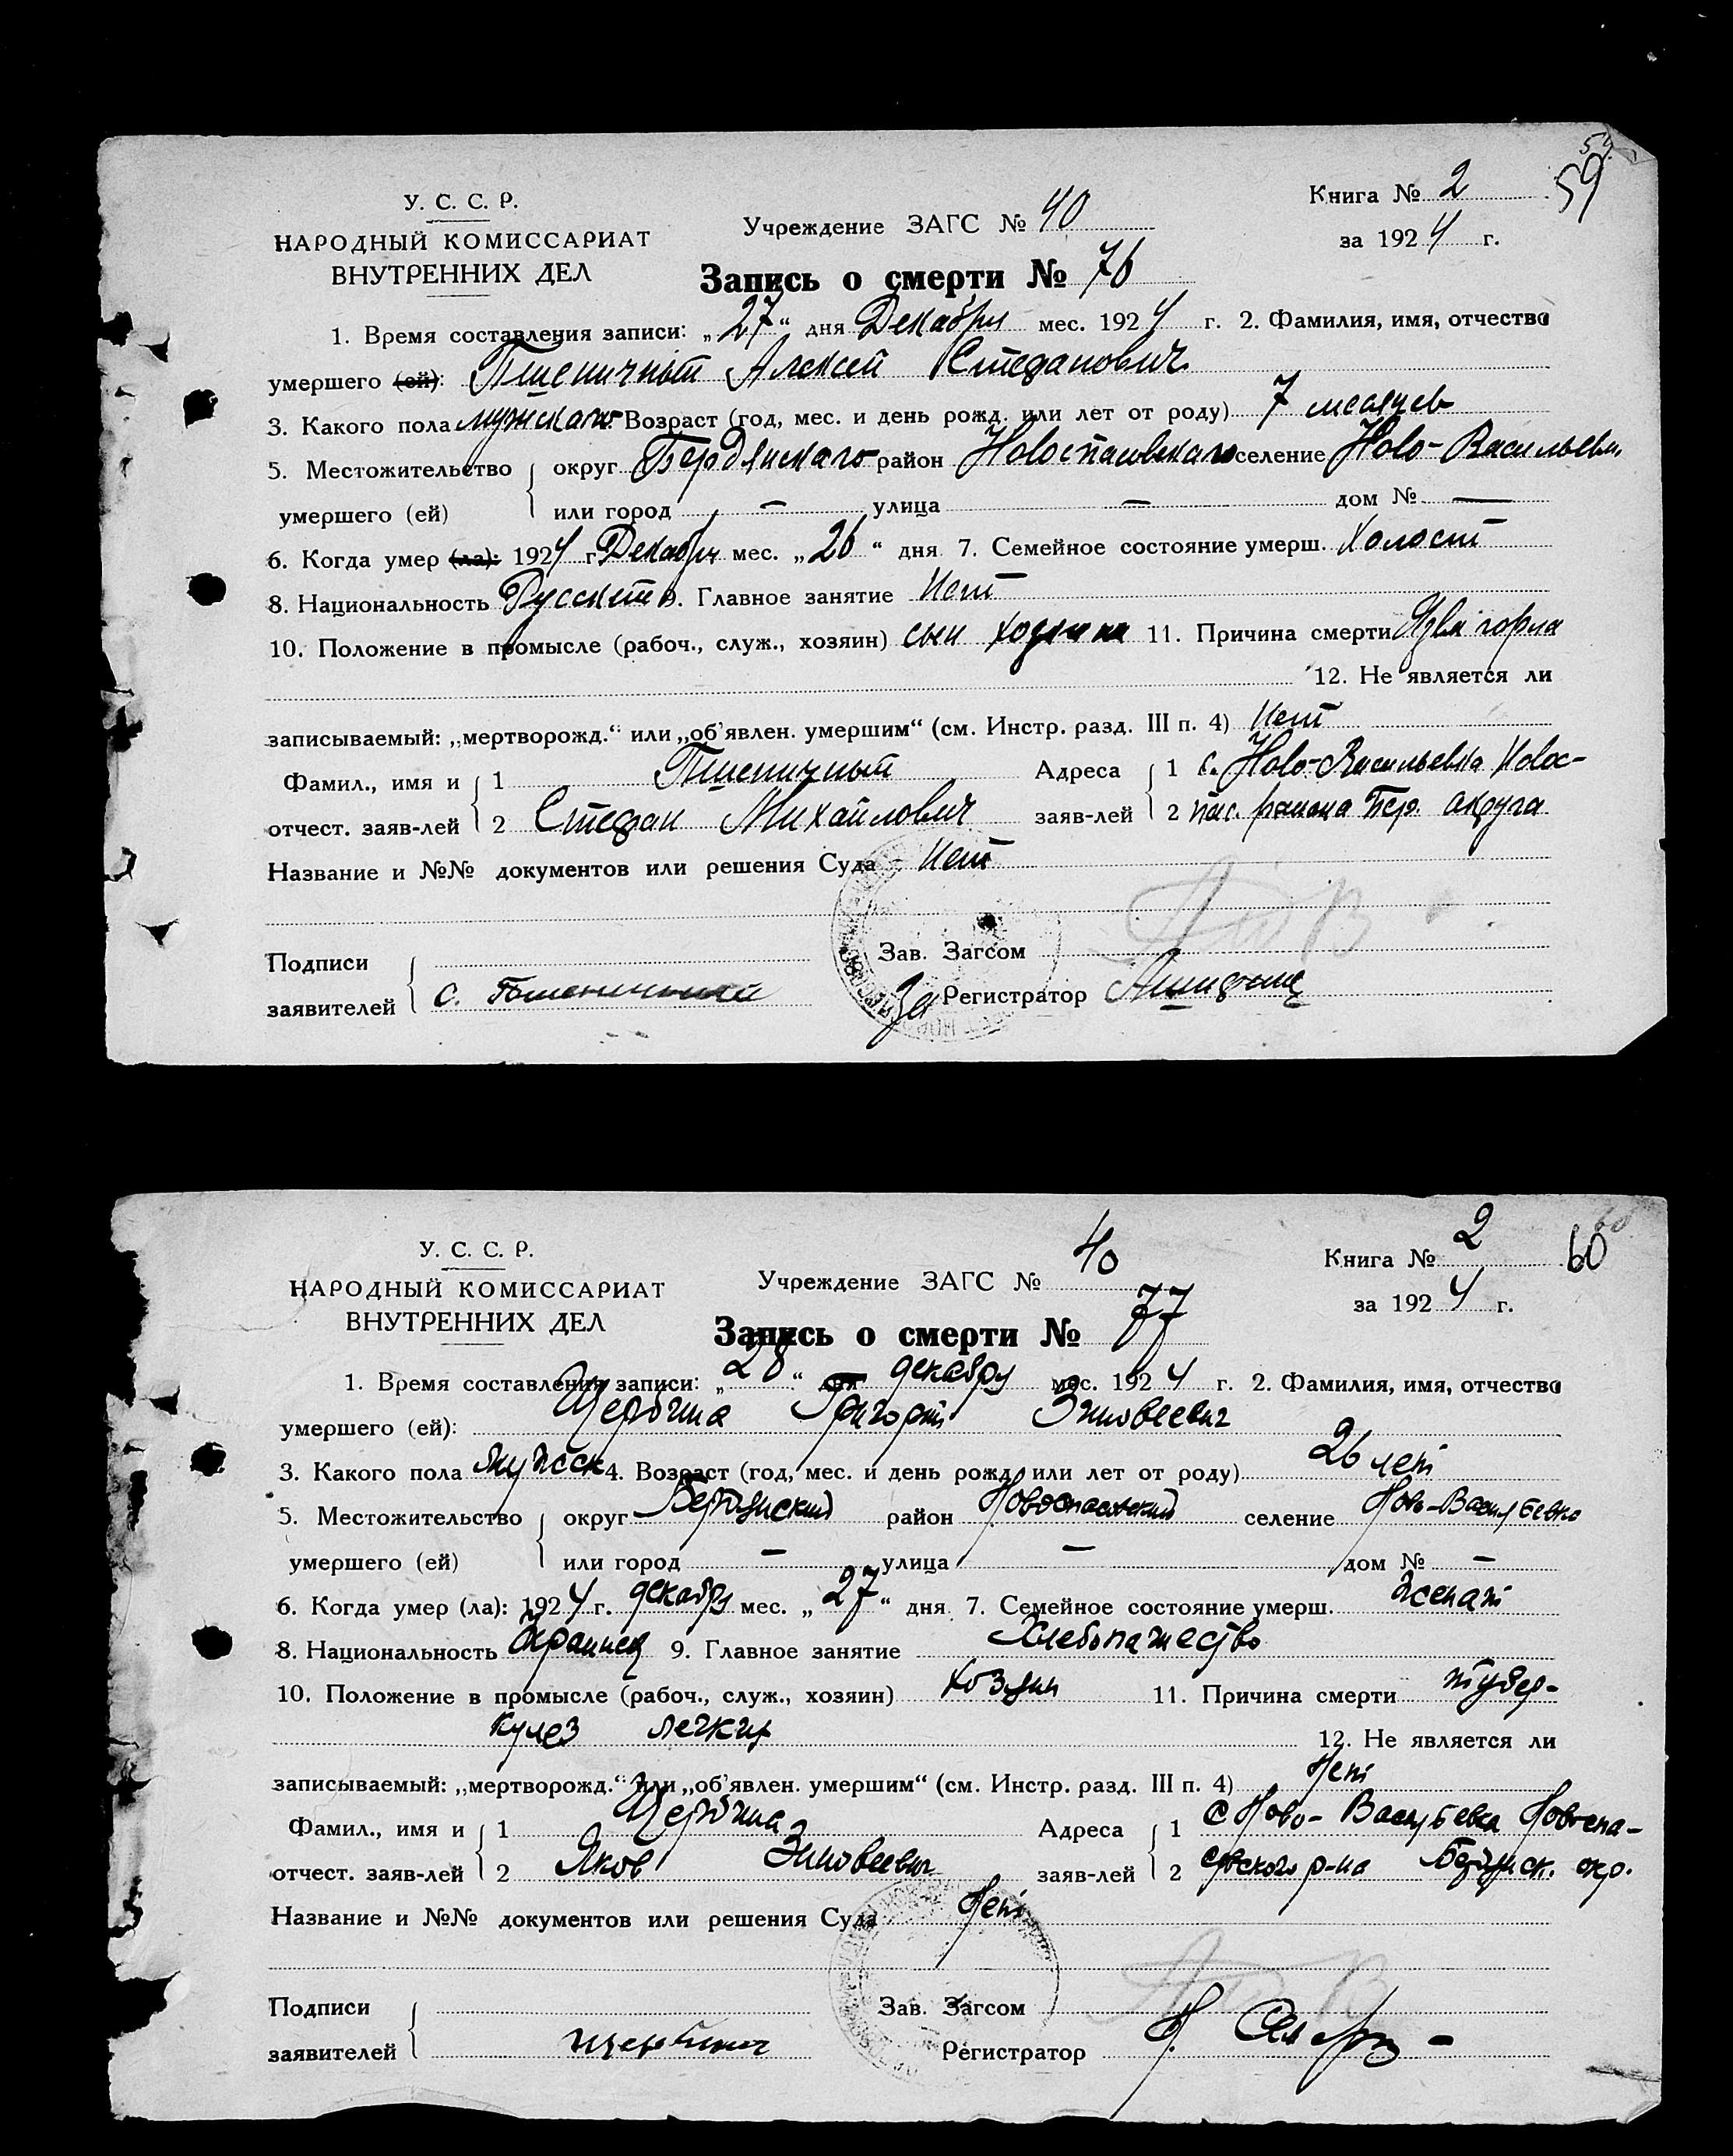 59
59
У. С. С. Р.
НАРОДНЫЙ КОМИССАРИАТ
ВНУТРЕННИХ ДЕЛ
Учреждение ЗАГС № 40
Книга № 2
за 1924 г.
Запись о смерти № 76
1. Время составления записи: „27“ дня Декабря мес. 1924 г. 2. Фамилия, имя, отчество
умершего (ей): Пшеничный Алексей Стефанович
3. Какого пола мужского Возраст (год, мес. и день рожд. или лет от роду) 7 месяцев
5. Местожительство округ Бердянского район Новоспасовского селение Ново-Васильевк.
умершего (ей) или город — улица — дом № —
6. Когда умер (ла): 1924 г. Декабря мес. „26“ дня 7. Семейное состояние умерш. Холост
8. Национальность Русский 9. Главное занятие Нет
10. Положение в промысле (рабоч., служ., хозяин) сын хозяина 11. Причина смерти Язва горла
12. Не является ли
записываемый: „мертворожд.“ или „об'явлен. умершим“ (см. Инстр. разд. III п. 4) Нет
Фамил., имя и 1 Пшеничный Адреса 1 с. Ново-Васильевка Новос-
отчест. заяв-лей 2 Стефан Михайлович заяв-лей 2 пас. района Бер. округа
Название и №№ документов или решения Суда Нет
Подписи Зав. Загсом
заявителей С. Пшеничный За Регистратор
60
60
У. С. С. Р.
НАРОДНЫЙ КОМИССАРИАТ
ВНУТРЕННИХ ДЕЛ
Учреждение ЗАГС № 40
Книга № 2
за 1924 г.
Запись о смерти № 77
1. Время составления записи: „28“ дня декабря мес. 1924 г. 2. Фамилия, имя, отчество
умершего (ей): Щербина Григорий Зиновеевич
3. Какого пола мужск 4. Возраст (год, мес. и день рожд. или лет от роду) 26 лет
5. Местожительство округ Бердянский район Новоспасовский селение Ново-Васильевка
умершего (ей) или город — улица — дом № —
6. Когда умер (ла): 1924 г. декабря мес. „27“ дня 7. Семейное состояние умерш. женат
8. Национальность Украинец 9. Главное занятие Хлебопашество
10. Положение в промысле (рабоч., служ., хозяин) хозяин 11. Причина смерти тубер-
кулез легких 12. Не является ли
записываемый: „мертворожд.“ или „об'явлен. умершим“ (см. Инстр. разд. III п. 4) Нет
Фамил., имя и 1 Щербина Адреса 1 с Ново-Васильевка Новоспа-
отчест. заяв-лей 2 Яков Зиновеевич заяв-лей 2 совского р-на Бердянск. окр.
Название и №№ документов или решения Суда Нет
Подписи Зав. Загсом
заявителей Щербина Регистратор